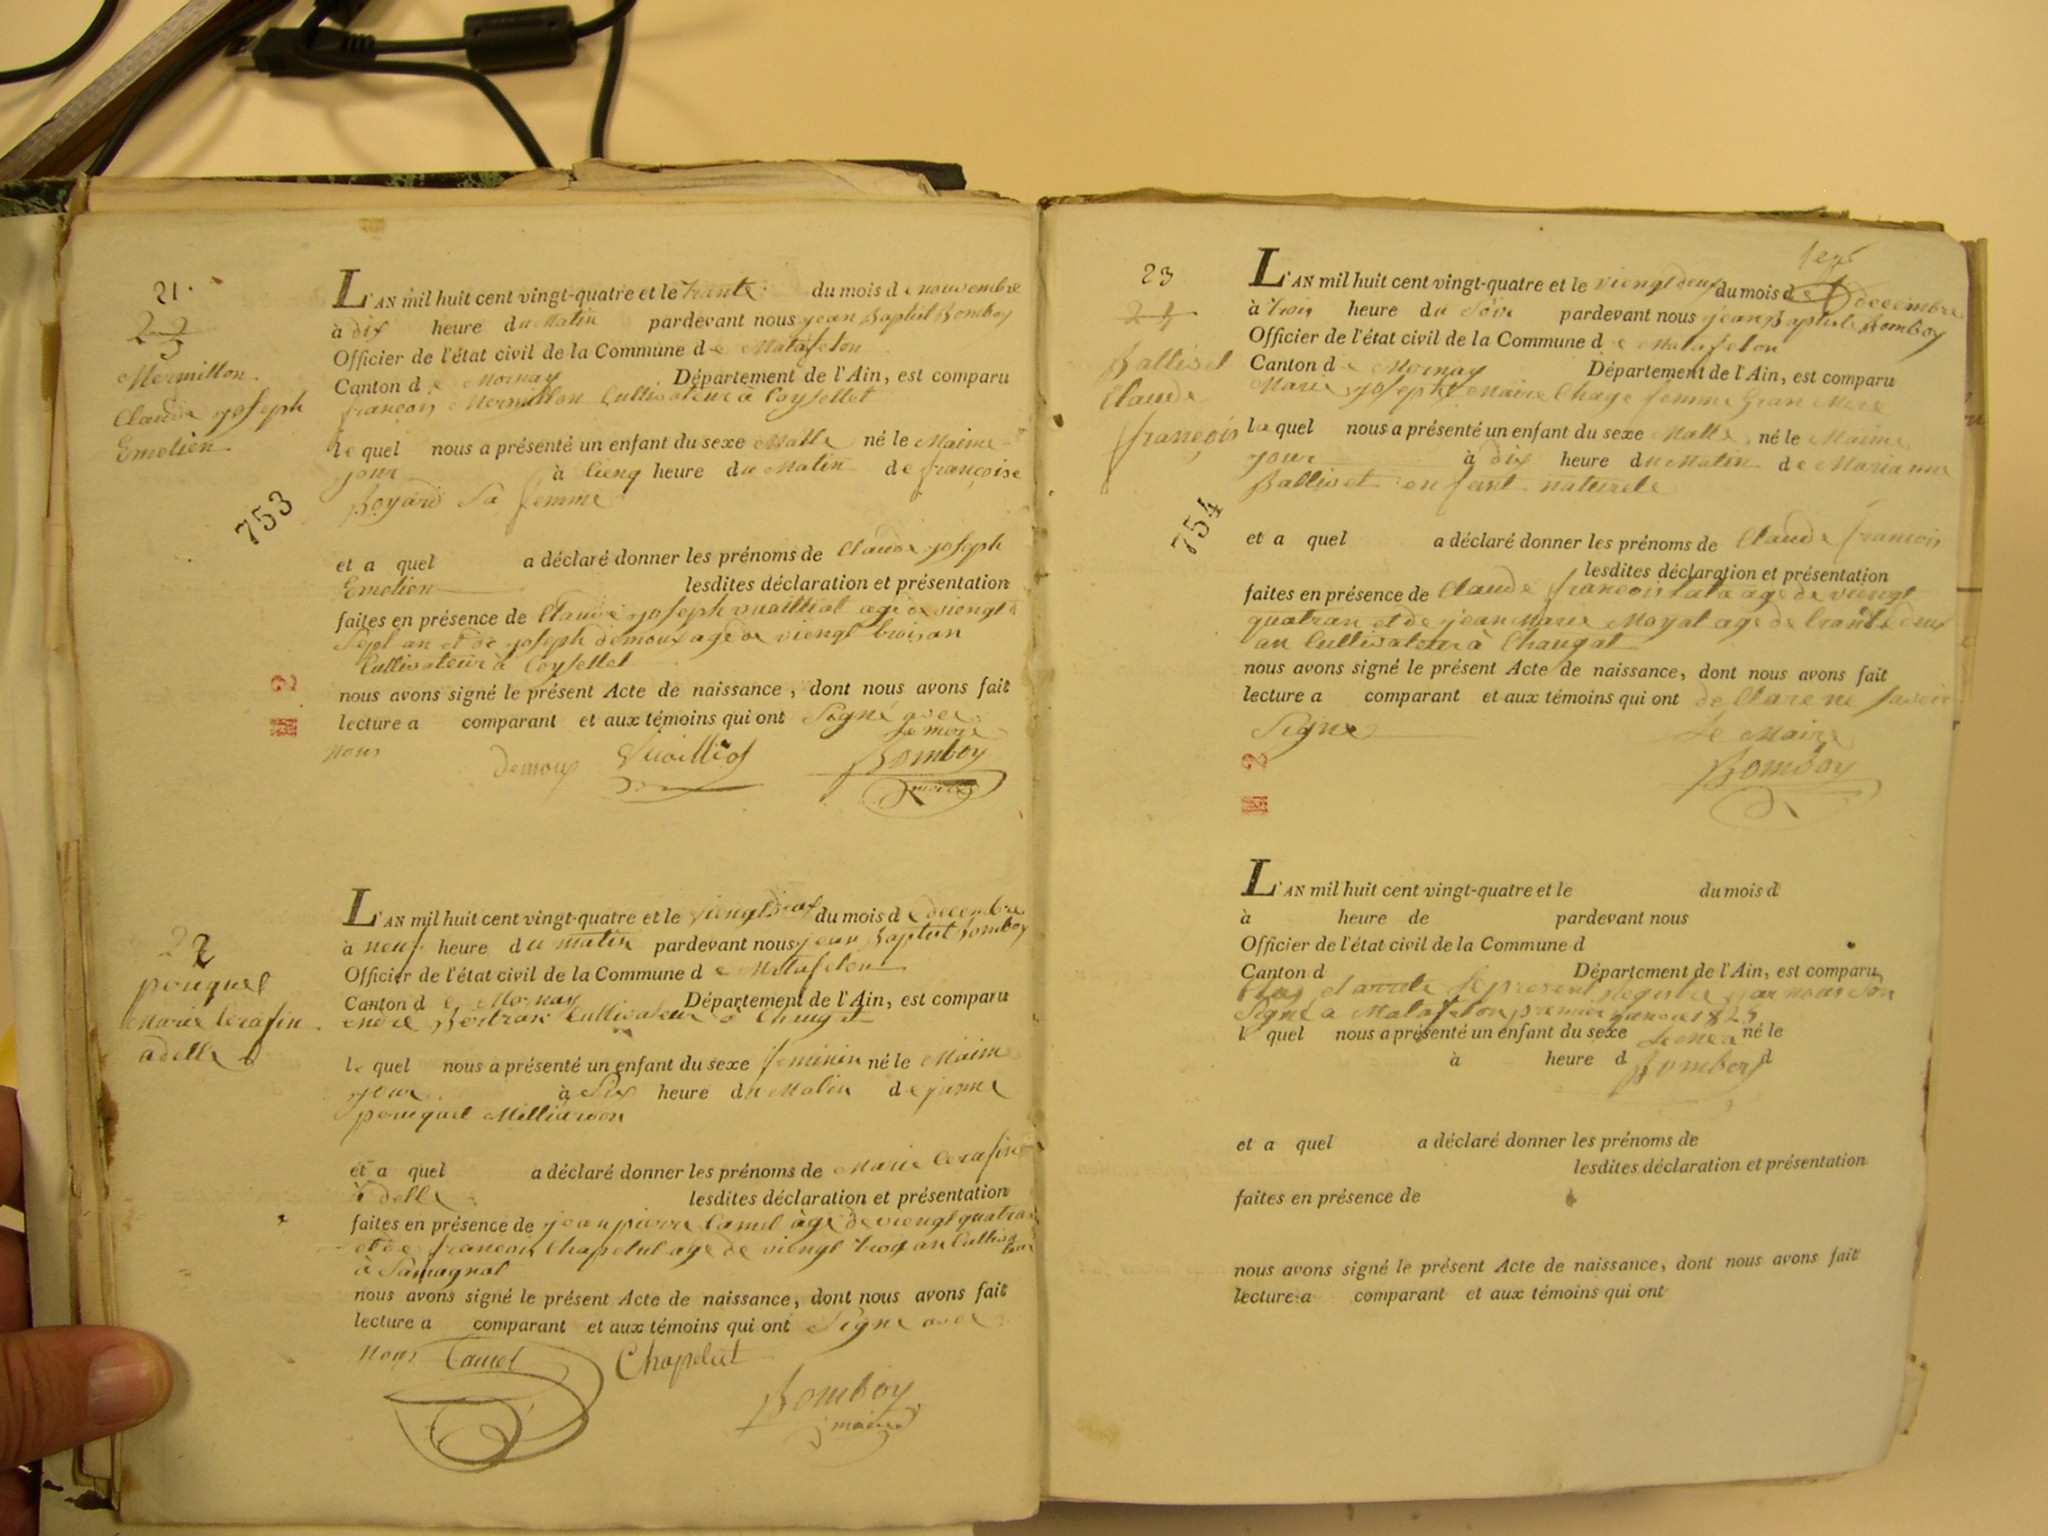 21.
22
3
Mermillon
Claude joseph
Emelien
753
L'AN mil huit cent vingt-quatre et le trante du mois d e nouvembre
à dix heure du Matin pardevant nous jean Baptist Bomboy
Officier de l'état civil de la Commune d e Matafelon
Canton d e Mornay Département de l'Ain, est comparu
francois Mermillon Cultivateur à Coysellet
le quel nous a présenté un enfant du sexe Malle né le Maime
jour à cinq heure du Matin de françoise
Boyard Sa femme
et a quel a déclaré donner les prénoms de Claude joseph
Emelien lesdites déclaration et présentation
faites en présence de Claude joseph vuailliat agé de viengt
Sept an et de joseph demoux agé de viengt trois an
Cultivateur à Coysellet
nous avons signé le présent Acte de naissance, dont nous avons fait
lecture a comparant et aux témoins qui ont Signé avec
nous
demoux Bomboy
22
pouquel
Marie Cerafin
adelle
L'AN mil huit cent vingt-quatre et le du mois d e decembre
à neuf heure du matin pardevant nous jean Baptist Bomboy
Officier de l'état civil de la Commune d e Matafelon
Canton d e Mornay Département de l'Ain, est comparu
Bertran Cultivateur à
le quel nous a présenté un enfant du sexe feminin né le Maime
jour à Six heure du Matin de
pouquel
et a quel a déclaré donner les prénoms de Marie Cerafine
adelle lesdites déclaration et présentation
faites en présence de jean pierre Camel àgé de viengt quatran
et de francois Chapelut agé de viengt an Cultivateur
à Samognat
nous avons signé le présent Acte de naissance, dont nous avons fait
lecture a comparant et aux témoins qui ont Signe avec
nous Camel Chapelut
Bomboy
maire
23
24
Ballivet
Claude
françois
754
L'AN mil huit cent vingt-quatre et le viengt deux du mois d e decembre
à trois heure du Soir pardevant nous jean Baptiste Bomboy
Officier de l'état civil de la Commune d e Matafelon
Canton d e Mornay Département de l'Ain, est comparu
Marie josephte Maire Chage femme Gran Mere
la quel nous a présenté un enfant du sexe Malle né le Maime
jour à dix heure du Matin de Marianne
Ballivet enfant naturele
et a quel a déclaré donner les prénoms de Claude francois
lesdites déclaration et présentation
faites en présence de Claude francois agé de viengt
quatran et de jean Marie Moyat agé de trante deux
an Cultivateur à Chaugat
nous avons signé le présent Acte de naissance, dont nous avons fait
lecture a comparant et aux témoins qui ont declare ne savoir
Signe
Le Maire
Bomboy
L'AN mil huit cent vingt-quatre et le du mois d
à heure de pardevant nous
Officier de l'état civil de la Commune d
Canton d Département de l'Ain, est comparu
Clos et arrete le present Registre par nous Son
Signé a Matafelon premier janvier 1825
l quel nous a présenté un enfant du sexe né le
à heure d d
Bomboy
et a quel a déclaré donner les prénoms de
lesdites déclaration et présentation
faites en présence de
nous avons signé le présent Acte de naissance, dont nous avons fait
lecture a comparant et aux témoins qui ont